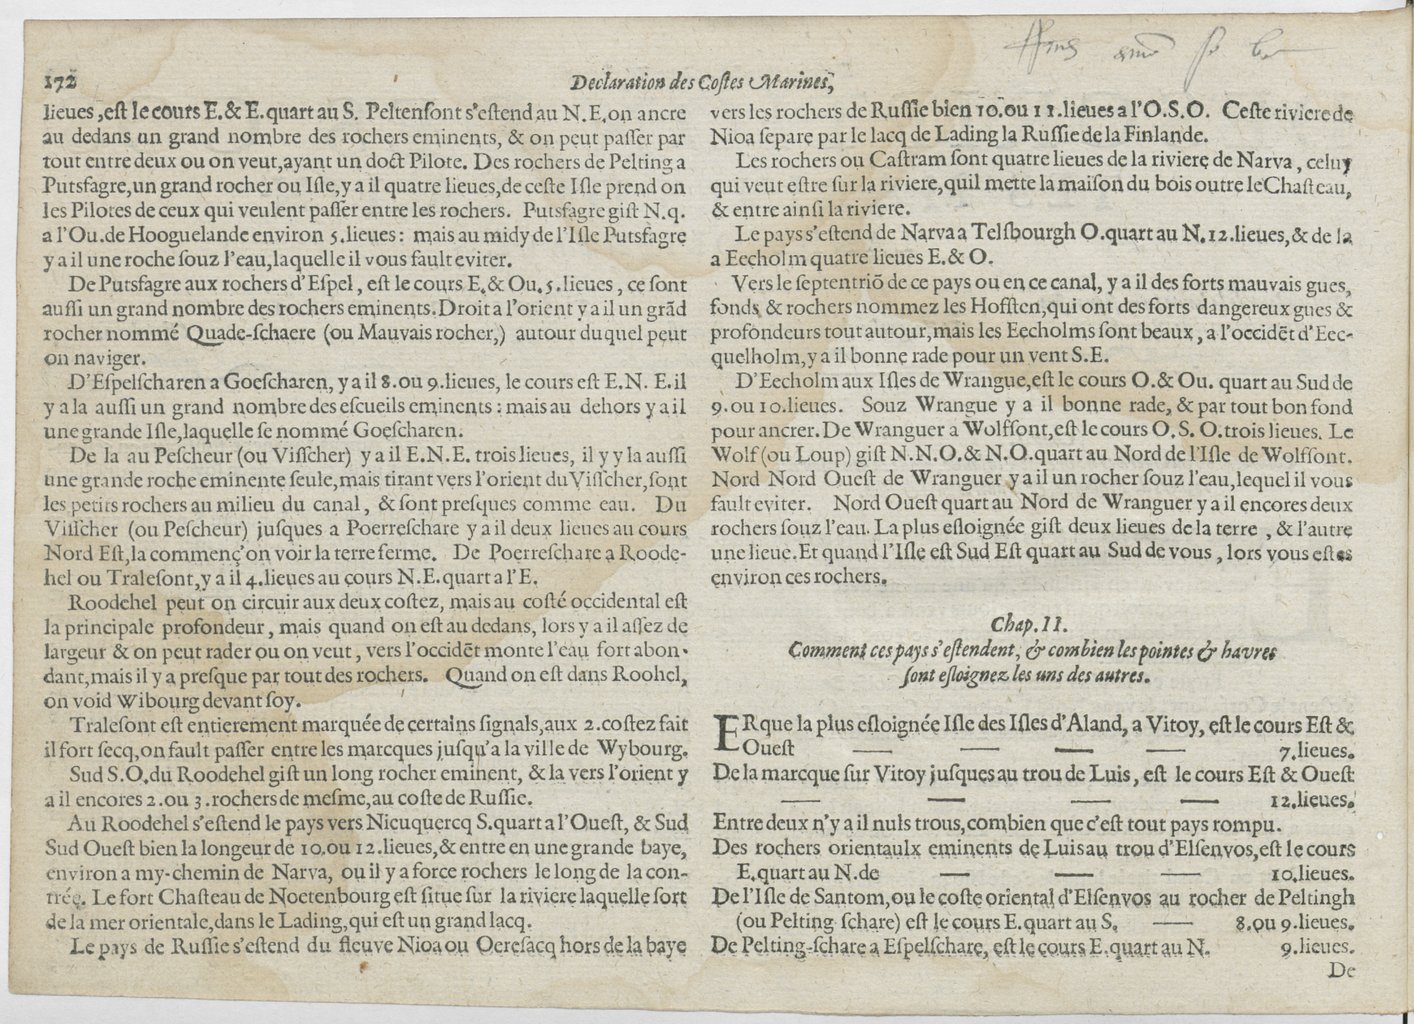 172
Declaration des Costes Marines,
lieues, est le cours E. & E. quart au S. Peltensont s'estend au N. E, on ancre
au dedans un grand nombre des rochers eminents, & on peut passer par
tout entre deux ou on veut, ayant un doct Pilote. Des rochers de Pelting a
Putsfagre, un grand rocher ou Isle, y a il quatre lieues, de ceste Isle prend on
les Pilotes de ceux qui veulent passer entre les rochers. Putsfagre gist N. q.
a l'Ou. de Hooguelande environ 5. lieues: mais au midy de l'Isle Putsfagre
y a il une roche souz l'eau, laquelle il vous fault eviter.
De Putsfagre aux rochers d'Espel, est le cours E. & Ou. 5. lieues, ce sont
aussi un grand nombre des rochers eminents. Droit a l'orient y a il un grãd
rocher nommé Quade-schaere (ou Mauvais rocher,) autour duquel peut
on naviger.
D'Espelscharen a Goescharen, y a il 8. ou 9. lieues, le cours est E. N. E. il
y a la aussi un grand nombre des escueils eminents: mais au dehors y a il
une grande Isle, laquelle se nommé Goescharen.
De la au Pescheur (ou Visscher) y a il E. N. E. trois lieues, il y y la aussi
une grande roche eminente seule, mais tirant vers l'orient du Visscher, sont
les petits rochers au milieu du canal, & sont presques comme eau. Du
Visscher (ou Pescheur) jusques a Poerreschare y a il deux lieues au cours
Nord Est, la commenç'on voir la terre ferme. De Poerreschare a Roode-
hel ou Tralesont, y a il 4. lieues au cours N. E. quart a l'E.
Roodehel peut on circuir aux deux costez, mais au costé occidental est
la principale profondeur, mais quand on est au dedans, lors y a il assez de
largeur & on peut rader ou on veut, vers l'occidẽt monte l'eau fort abon-
dant, mais il y a presque par tout des rochers. Quand on est dans Roohel,
on void Wibourg devant soy.
Tralesont est entierement marquée de certains signals, aux 2. costez fait
il fort secq, on fault passer entre les marcques jusqu'a la ville de Wybourg.
Sud S. O. du Roodehel gist un long rocher eminent, & la vers l'orient y
a il encores 2. ou 3. rochers de mesme, au coste de Russie.
Au Roodehel s'estend le pays vers Nicuquercq S. quart a l'Ouest, & Sud
Sud Ouest bien la longeur de 10. ou 12. lieues, & entre en une grande baye,
environ a my-chemin de Narva, ou il y a force rochers le long de la con-
trée. Le fort Chasteau de Noetenbourg est situe sur la riviere laquelle sort
de la mer orientale, dans le Lading, qui est un grand lacq.
Le pays de Russie s'estend du fleuve Nioa ou Oeresacq hors de la baye
vers les rochers de Russie bien 10. ou 11. lieues a l'O. S. O. Ceste riviere de
Nioa separe par le lacq de Lading la Russie de la Finlande.
Les rochers ou Castram sont quatre lieues de la riviere de Narva, celuy
qui veut estre sur la riviere, quil mette la maison du bois outre le Chasteau,
& entre ainsi la riviere.
Le pays s'estend de Narva a Telsbourgh O. quart au N. 12. lieues, & de la
a Eecholm quatre lieues E. & O.
Vers le septentriõ de ce pays ou en ce canal, y a il des forts mauvais gues,
fonds & rochers nommez les Hofften, qui ont des forts dangereux gues &
profondeurs tout autour, mais les Eecholms sont beaux, a l'occidẽt d'Eec-
quelholm, y a il bonne rade pour un vent S. E.
D'Eecholm aux Isles de Wrangue, est le cours O. & Ou. quart au Sud de
9. ou 10. lieues. Souz Wrangue y a il bonne rade, & par tout bon fond
pour ancrer. De Wranguer a Wolfsont, est le cours O. S. O. trois lieues. Le
Wolf (ou Loup) gist N. N. O. & N. O. quart au Nord de l'Isle de Wolfsont.
Nord Nord Ouest de Wranguer y a il un rocher souz l'eau, lequel il vous
fault eviter. Nord Ouest quart au Nord de Wranguer y a il encores deux
rochers souz l'eau. La plus esloignée gist deux lieues de la terre, & l'autre
une lieue. Et quand l'Isle est Sud Est quart au Sud de vous, lors vous estes
environ ces rochers.
Chap. II.
Comment ces pays s'estendent, & combien les pointes & havres
sont esloignez les uns des autres.
ERque la plus esloignée Isle des Isles d'Aland, a Vitoy, est le cours Est &
Ouest — — — — 7. lieues.
De la marcque sur Vitoy jusques au trou de Luis, est le cours Est & Ouest
— — — — 12. lieues.
Entre deux n'y a il nuls trous, combien que c'est tout pays rompu.
Des rochers orientaulx eminents de Luis au trou d'Elsenvos, est le cours
E. quart au N. de — — — 10. lieues.
De l'Isle de Santom, ou le coste oriental d'Elsenvos au rocher de Peltingh
(ou Pelting-schare) est le cours E. quart au S. — 8. ou 9. lieues.
De Pelting-schare a Espelschare, est le cours E. quart au N. 9. lieues.
De